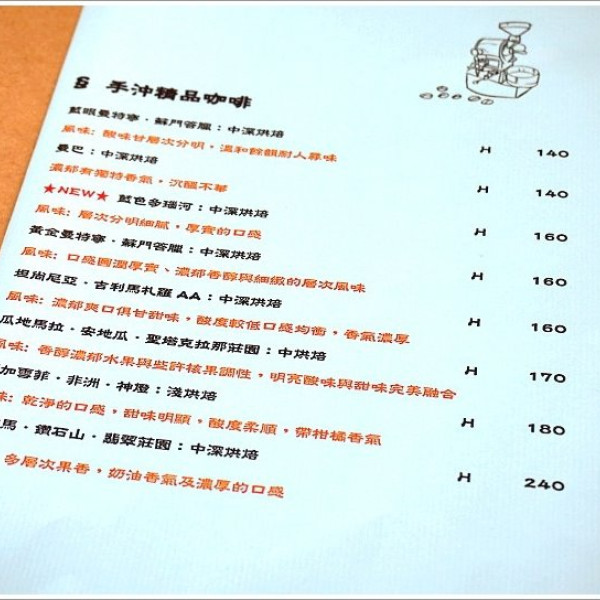 手沖精品咖啡
藍眼曼特寧·蘇門答臘：中深烘焙 H 140
風味：酸味甘層次分明，溫和餘韻耐人尋味
曼巴：中深烘焙 H 140
濃郁有獨特香氣，沉醞不華
★NEW★ 藍色多瑙河：中深烘焙 H 160
風味：層次分明細膩，厚實的口感
黃金曼特寧·蘇門答臘：中深烘焙 H 160
風味：口感圓潤厚實、濃郁香醇與細緻的層次風味
坦尚尼亞·吉利馬札羅 AA：中深烘焙 H 160
風味：濃郁爽口俱甘甜味，酸度較低口感均衡，香氣濃厚
瓜地馬拉·安地瓜·聖塔克拉那莊園：中烘焙 H 170
風味：香醇濃郁水果與些許核果調性，明亮酸味與甜味完美融合
加雪菲·非洲·神燈：淺烘焙 H 180
味：乾淨的口感，甜味明顯，酸度柔順，帶柑橘香氣
馬·鑽石山·翡翠莊園：中深烘焙 H 240
多層次果香，奶油香氣及濃厚的口感